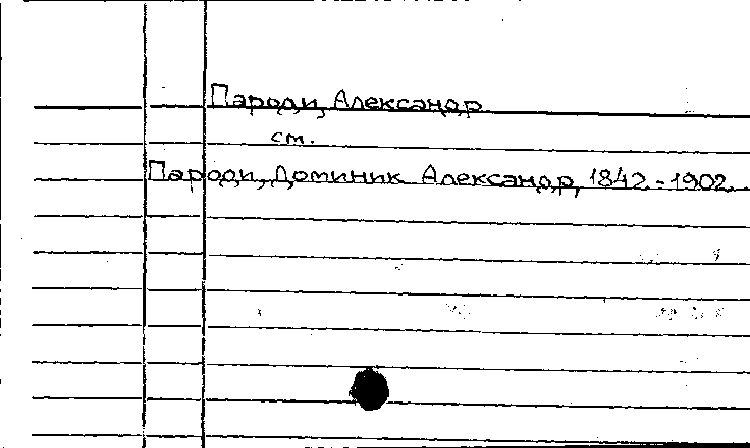 Пароди, Александр
см.
Пароди, Доминик Александр, 1842.-1902.